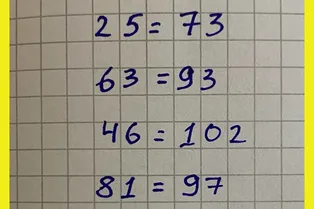 25 = 73
63 = 93
46 = 102
81 = 97